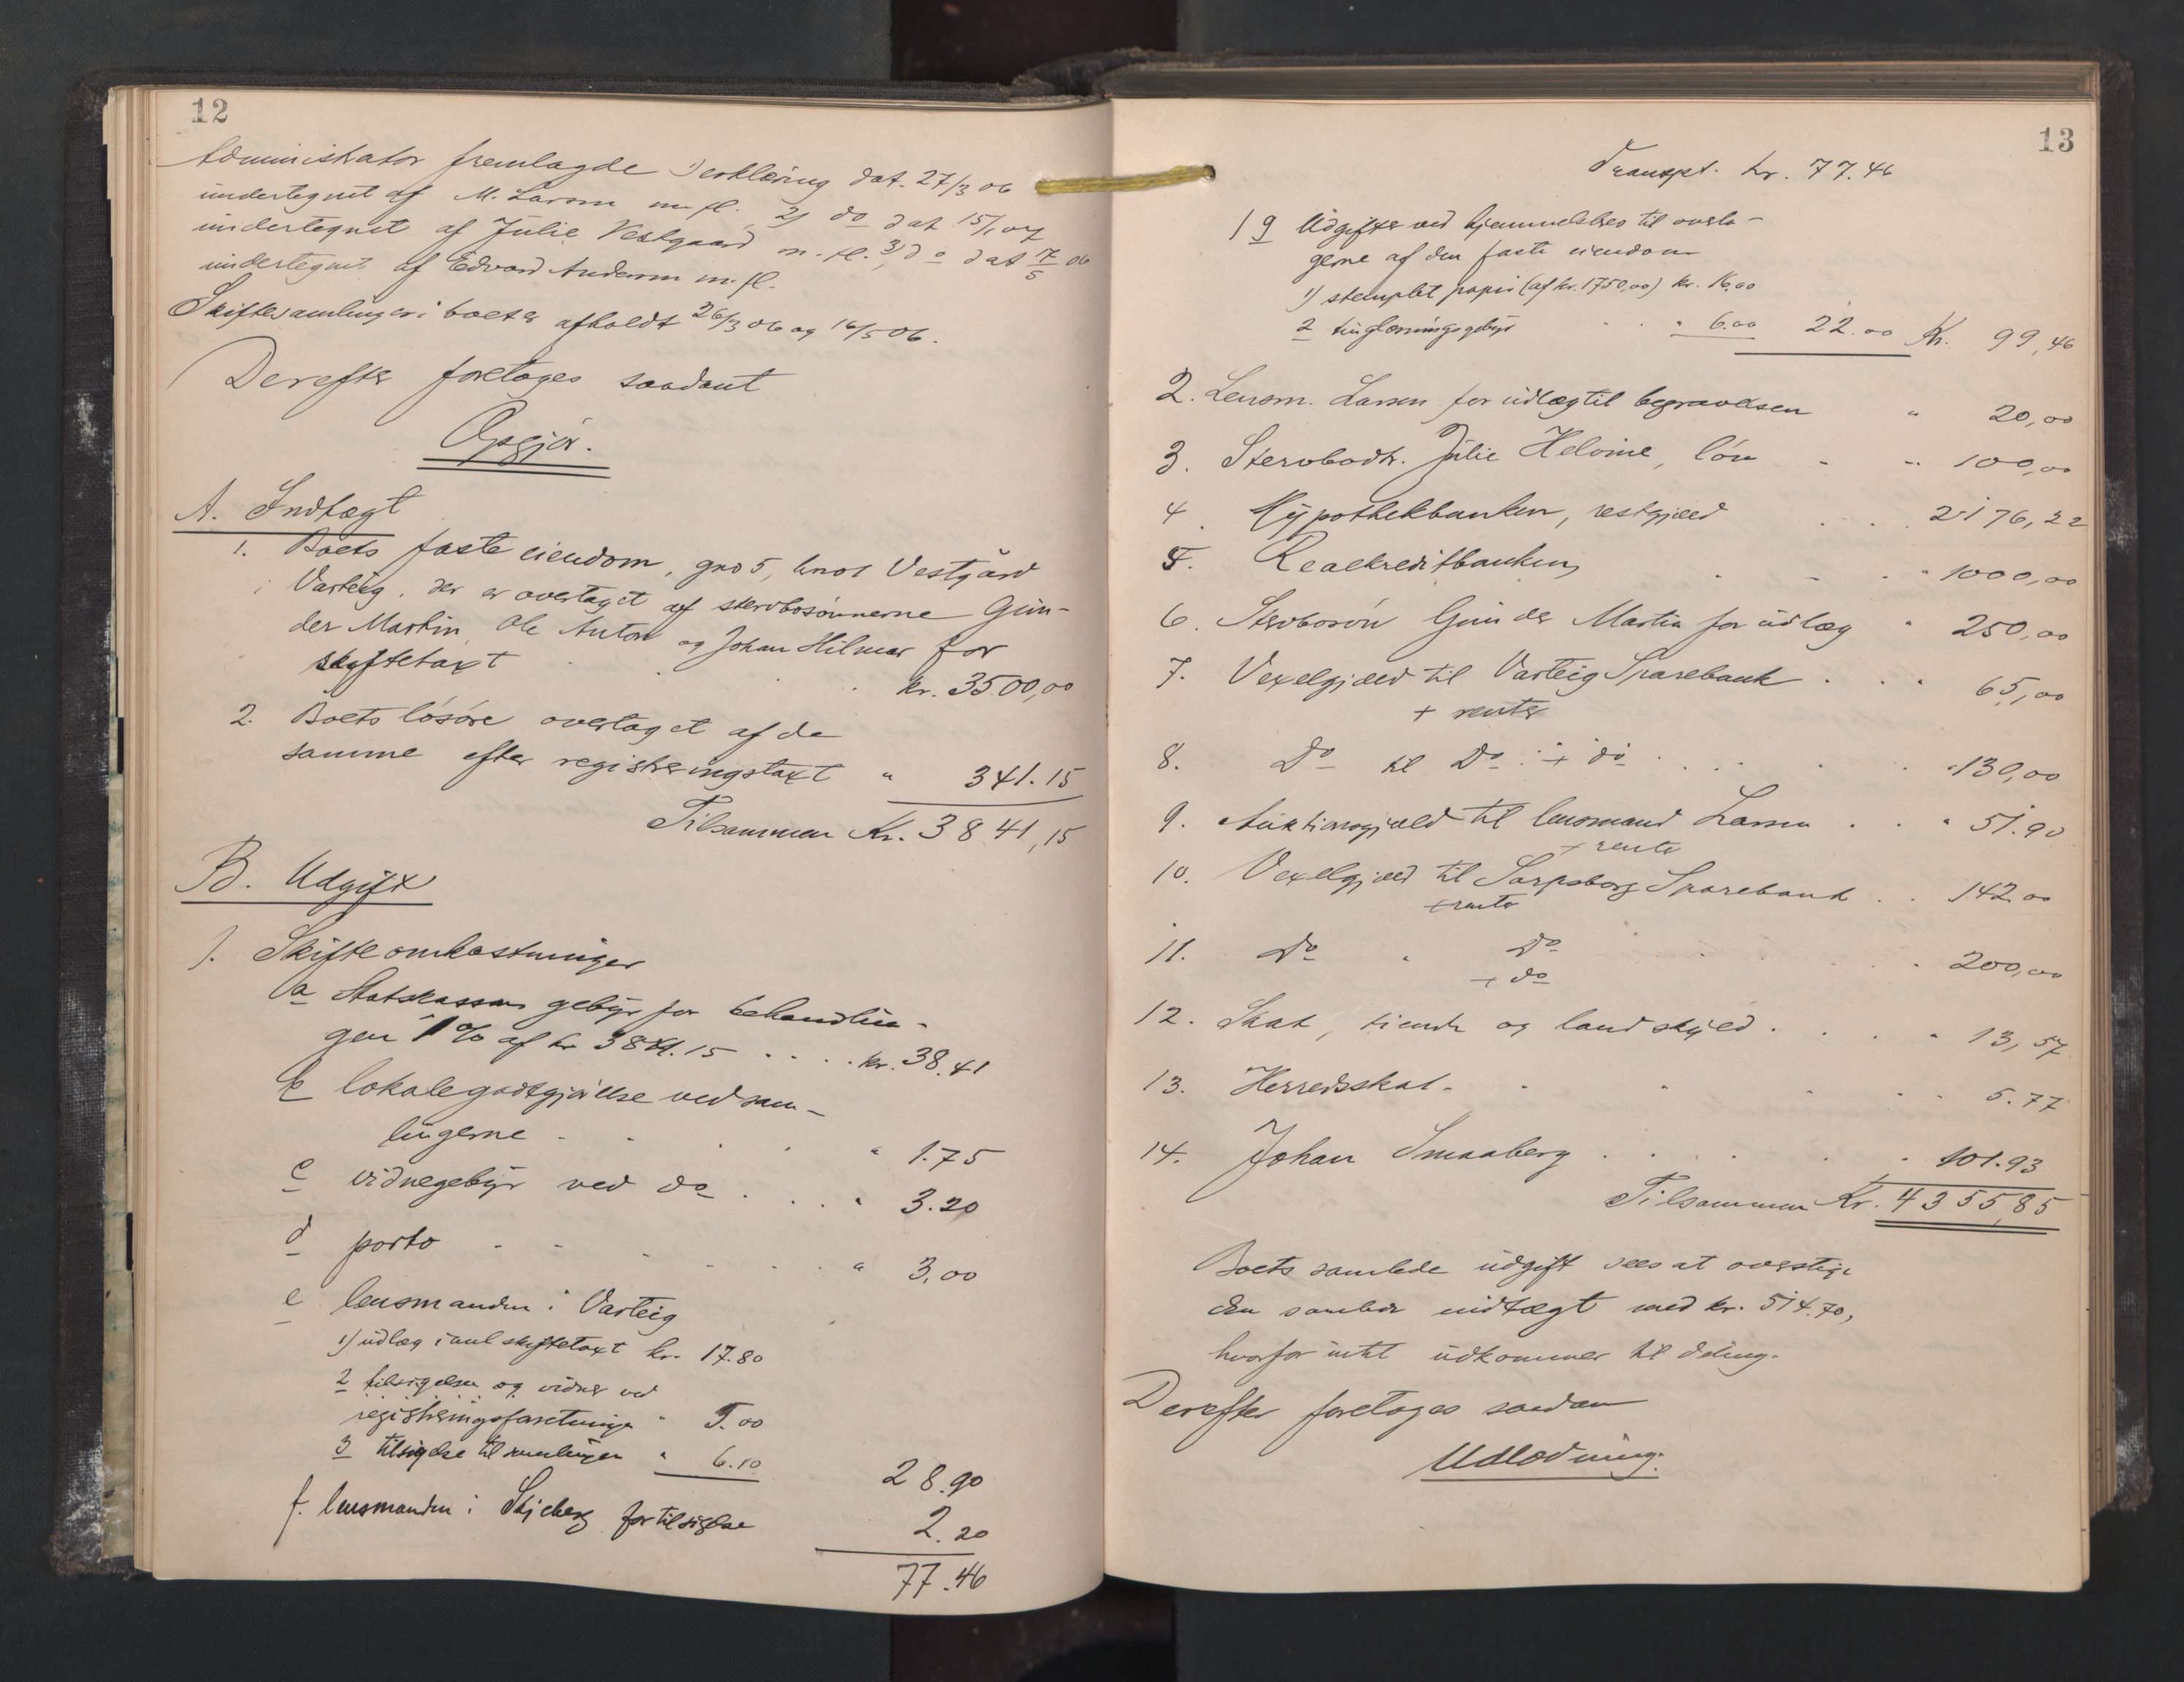 12
Administrator fremlagde 1) erklæring dat. 27/3 06
undertegnet af M. Larsen m. fl. 2) do dat 15/1 07
undertegnet af Julie Vestgaard m. fl. 3) do dat 17/5 06
undertegnet af Edvard Andersen m. fl.
Skiftesamlinger i boet er afholdt 26/3 06 og 16/5 06.
Derefter foretoges saadant
Opgjör.
A. Indtægt
1. Boets faste eiendom, gno 5, bno 1 Vestgård
i Varteig, der er overtaget af stervbosönnerne Gun-
der Martin, Ole Anton og Johan Hilmar for
skiftetaxt . . . kr. 3500,00
2. Boets lösöre overtaget af de
samme efter registreringstaxt " 341.15
Tilsammen Kr. 3841,15
B. Udgift
1. Skifteomkostninger
a Statskassens gebyr for behandlin-
gen 1 % af kr 3841.15 . . . . kr. 38.41
b lokalegodtgjörelse ved sam-
lingerne . . . . " 1.75
c vidnegebyr ved do . . . " 3.20
d porto . . . . . . " 3,00
e lensmanden i Varteig
1) udlæg i anl skiftetaxt kr. 17.80
2 tilsigelse og vidner ved
registreringsforretningen " 5.00
3 tilsigelse til samlingen " 6.10
28.90
f. lensmanden i Skjeberg for tilsigelse 2.20
77.46
13
Transpt. kr. 77.46
1 g Udgifter ved hjemmelsbrev til overta-
gerne af den faste eiendom
1) stemplet papir (af kr. 1750,00) kr. 16,00
2 tinglæsningsgebyr . . " 6.00 22.00 Kr. 99,46
2. Lensm. Larsen for udlæg til begravelsen " 20,00
3. Stervbodtr. Julie Helvine, lön . " 100,00
4. Hypothekbanken, restgjæld . . . 2176,22
5. Realkreditbanken . . . " 1000,00
6. Stervbosön Gunder Martin for udlæg " 250,00
7. Vexelgjæld til Varteig Sparebank . . " 65,00
+ renter
8. Do til Do + do . . . . " 130,00
9. Auktionsgjæld til lensmand Larsen . . " 51.90
+ rente
10. Vexelgjæld til Sarpsborg Sparebank . . 142.00
+ rente
11. Do " Do . . . . 200,00
+ do
12. Skat, tiende og landskyld . . . " 13,57
13. Herredsskat . . . . . 5.77
14. Johan Smaaberg . . . . . 101.93
Tilsammen Kr. 4355,85
Boets samlede udgift sees at overstige
den samlede indtægt med kr. 514.70,
hvorfor intet udkommer til deling.
Derefter foretoges saadan
Udlodning.